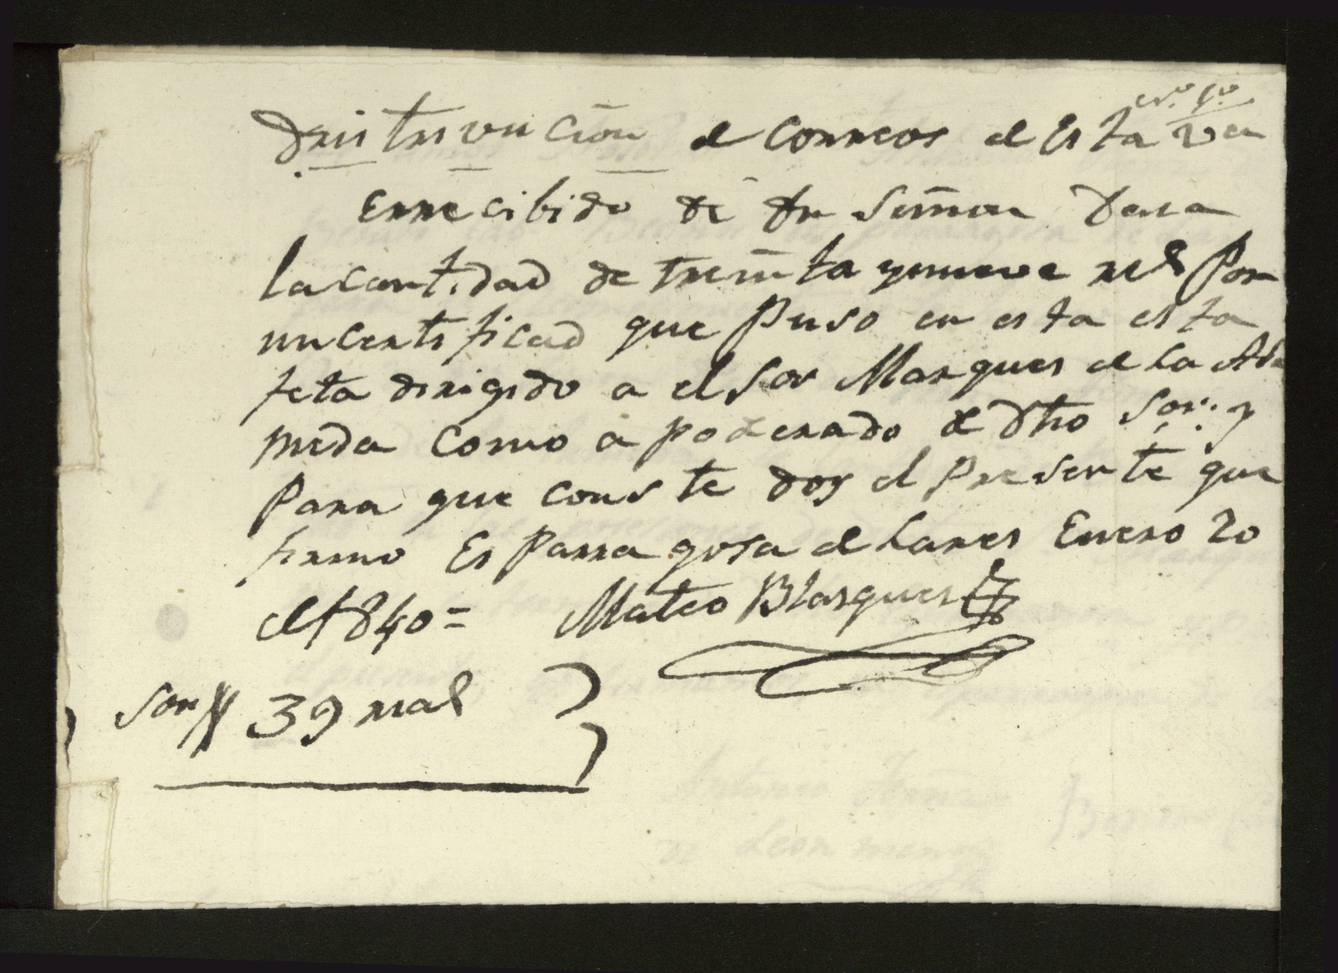 nº 1º
Dristrivucion de Correos de Esta Va
Enrrecibido de Dn Simon Dara
la cantidad de treinta y nueve rrs Por
un certificad que Puso en esta esta
feta dirigido a el Sor Marques de la Ala
meda como apoderado de Dho Sor. y
Para que conste doy el Presente que
firmo Esparragosa de Lares Enero 20
de 1840=    Mateo Blasques
Son 39 rrals